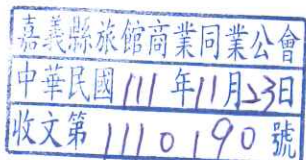 嘉義縣旅館商業同業公會
中華民國111年11月23日
收文第1110190號